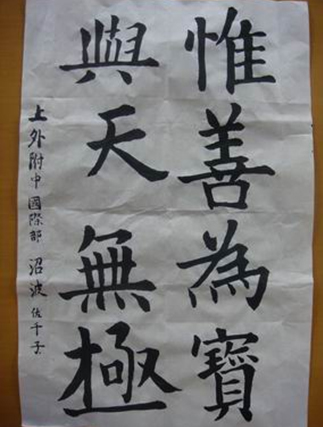 惟善為寶
與天無極
上外附中國際部 沼波佐千子